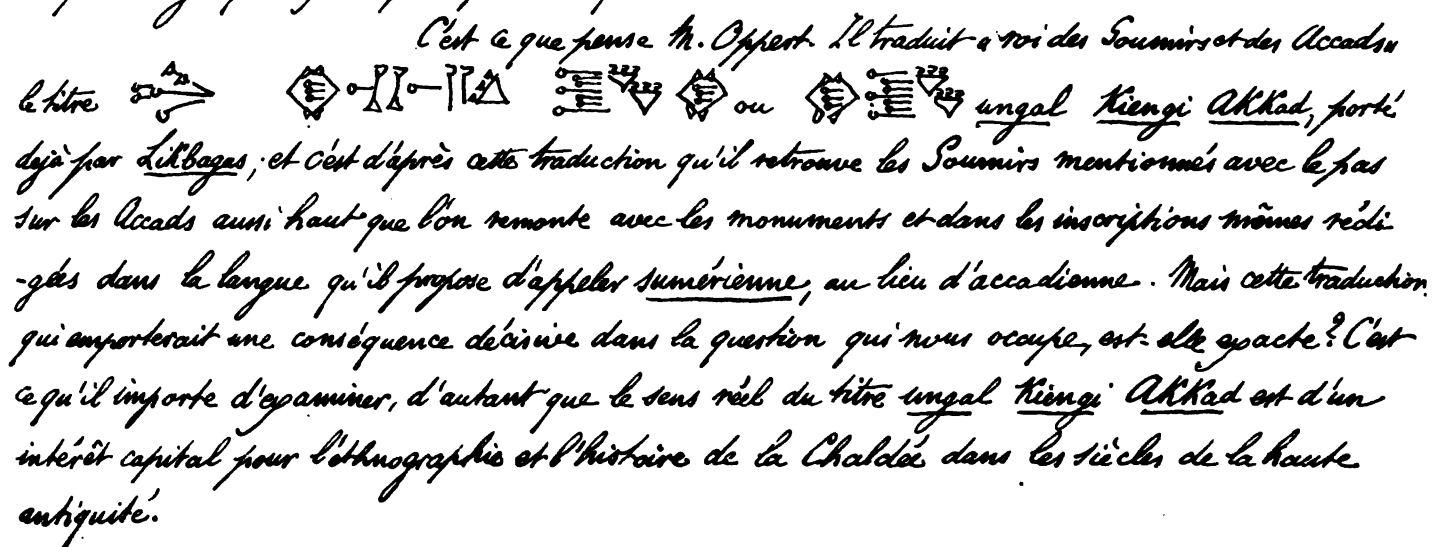 C'est ce que pense M. Oppert. Il traduit « roi des Soumirs et des Accads »
le titre ou ungal Kiengi AKKad, porté
dejà par Likbagas; et c'est d'après cette traduction qu'il retrouve les Soumirs mentionnés avec le pas
sur les Accads aussi haut que l'on remonte avec les monuments et dans les inscriptions mêmes rédi
-gées dans la langue qu'il propose d'appeler sumérienne, au lieu d'accadienne. Mais cette traduction
qui emporterait une conséquence décisive dans la question qui nous occupe, est-elle exacte? C'est
ce qu'il importe d'examiner, d'autant que le sens réel du titre ungal Kiengi AKKad est d'un
intérêt capital pour l'éthnographie et l'histoire de la Chaldée dans les siècles de la haute
antiquité.